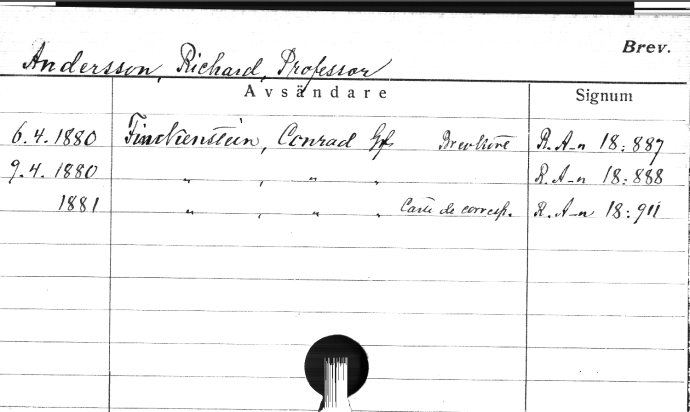 Brev.
Andersson, Richard, Professor
Avsändare Signum
6.4.1880 Finckenstein, Conrad Gf. R.A-n 18:887
9.4.1880 " , " " R.A-n 18:888
1881 " , " " Carte de corresp. R.A-n 18:911